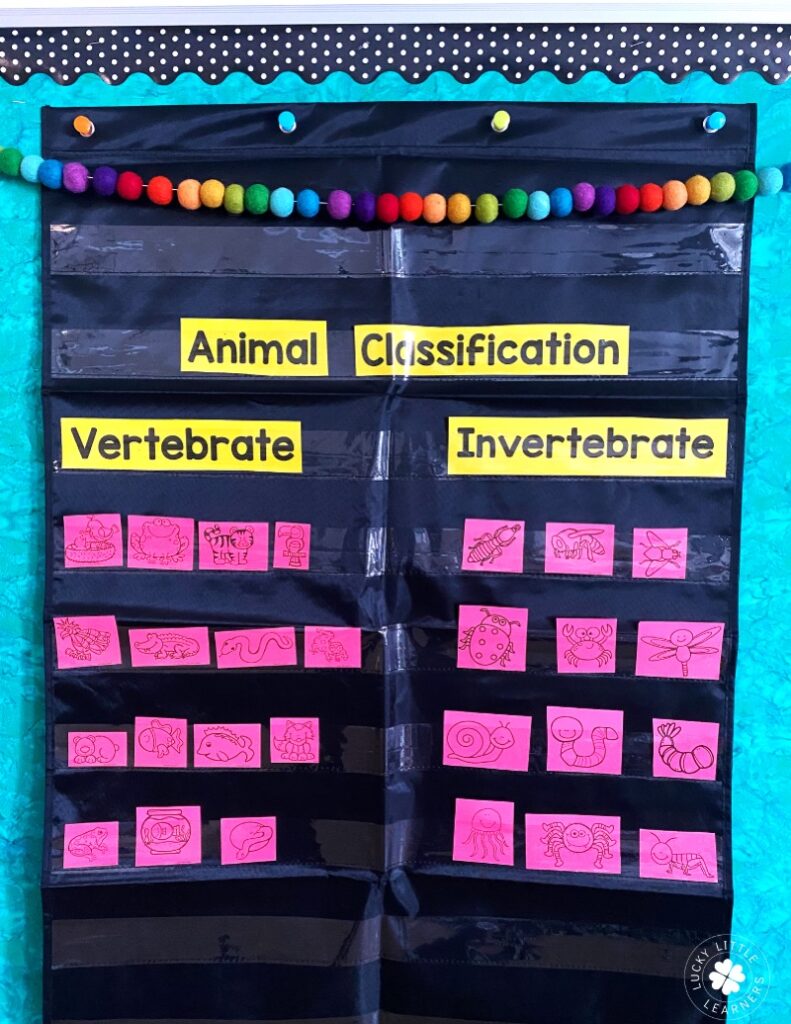 Animal Classification
Vertebrate
Invertebrate
LUCKY LITTLE
LEARNERS